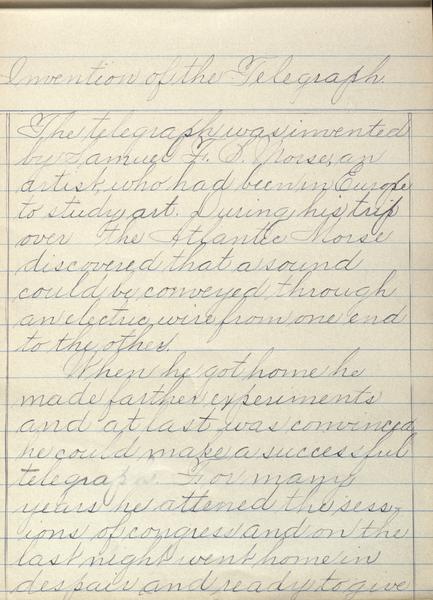 Invention of the Telegraph.
The telegraph was invented
by Samuel F. B. Morse, an
artist, who had been in Europe
to study art. During his trip
over the Atlantic Morse
discovered that a sound
could be conveyed through
an electric wire from one end
to the other.
When he got home he
made farther experiments
and at last was convinced
he could make a successful
telegraph. For many
years he attened the sess-
ions of congress and on the
last night went home in
despair and ready to give